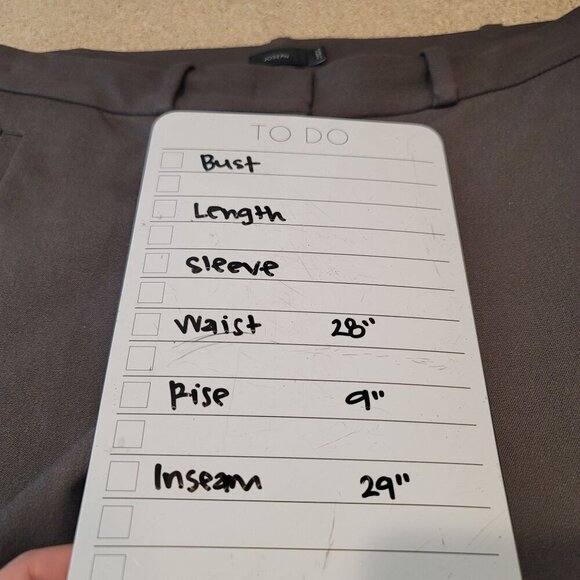 JOSEPH
TO DO
Bust
Length
Sleeve
Waist 28"
Rise 9"
Inseam 29"